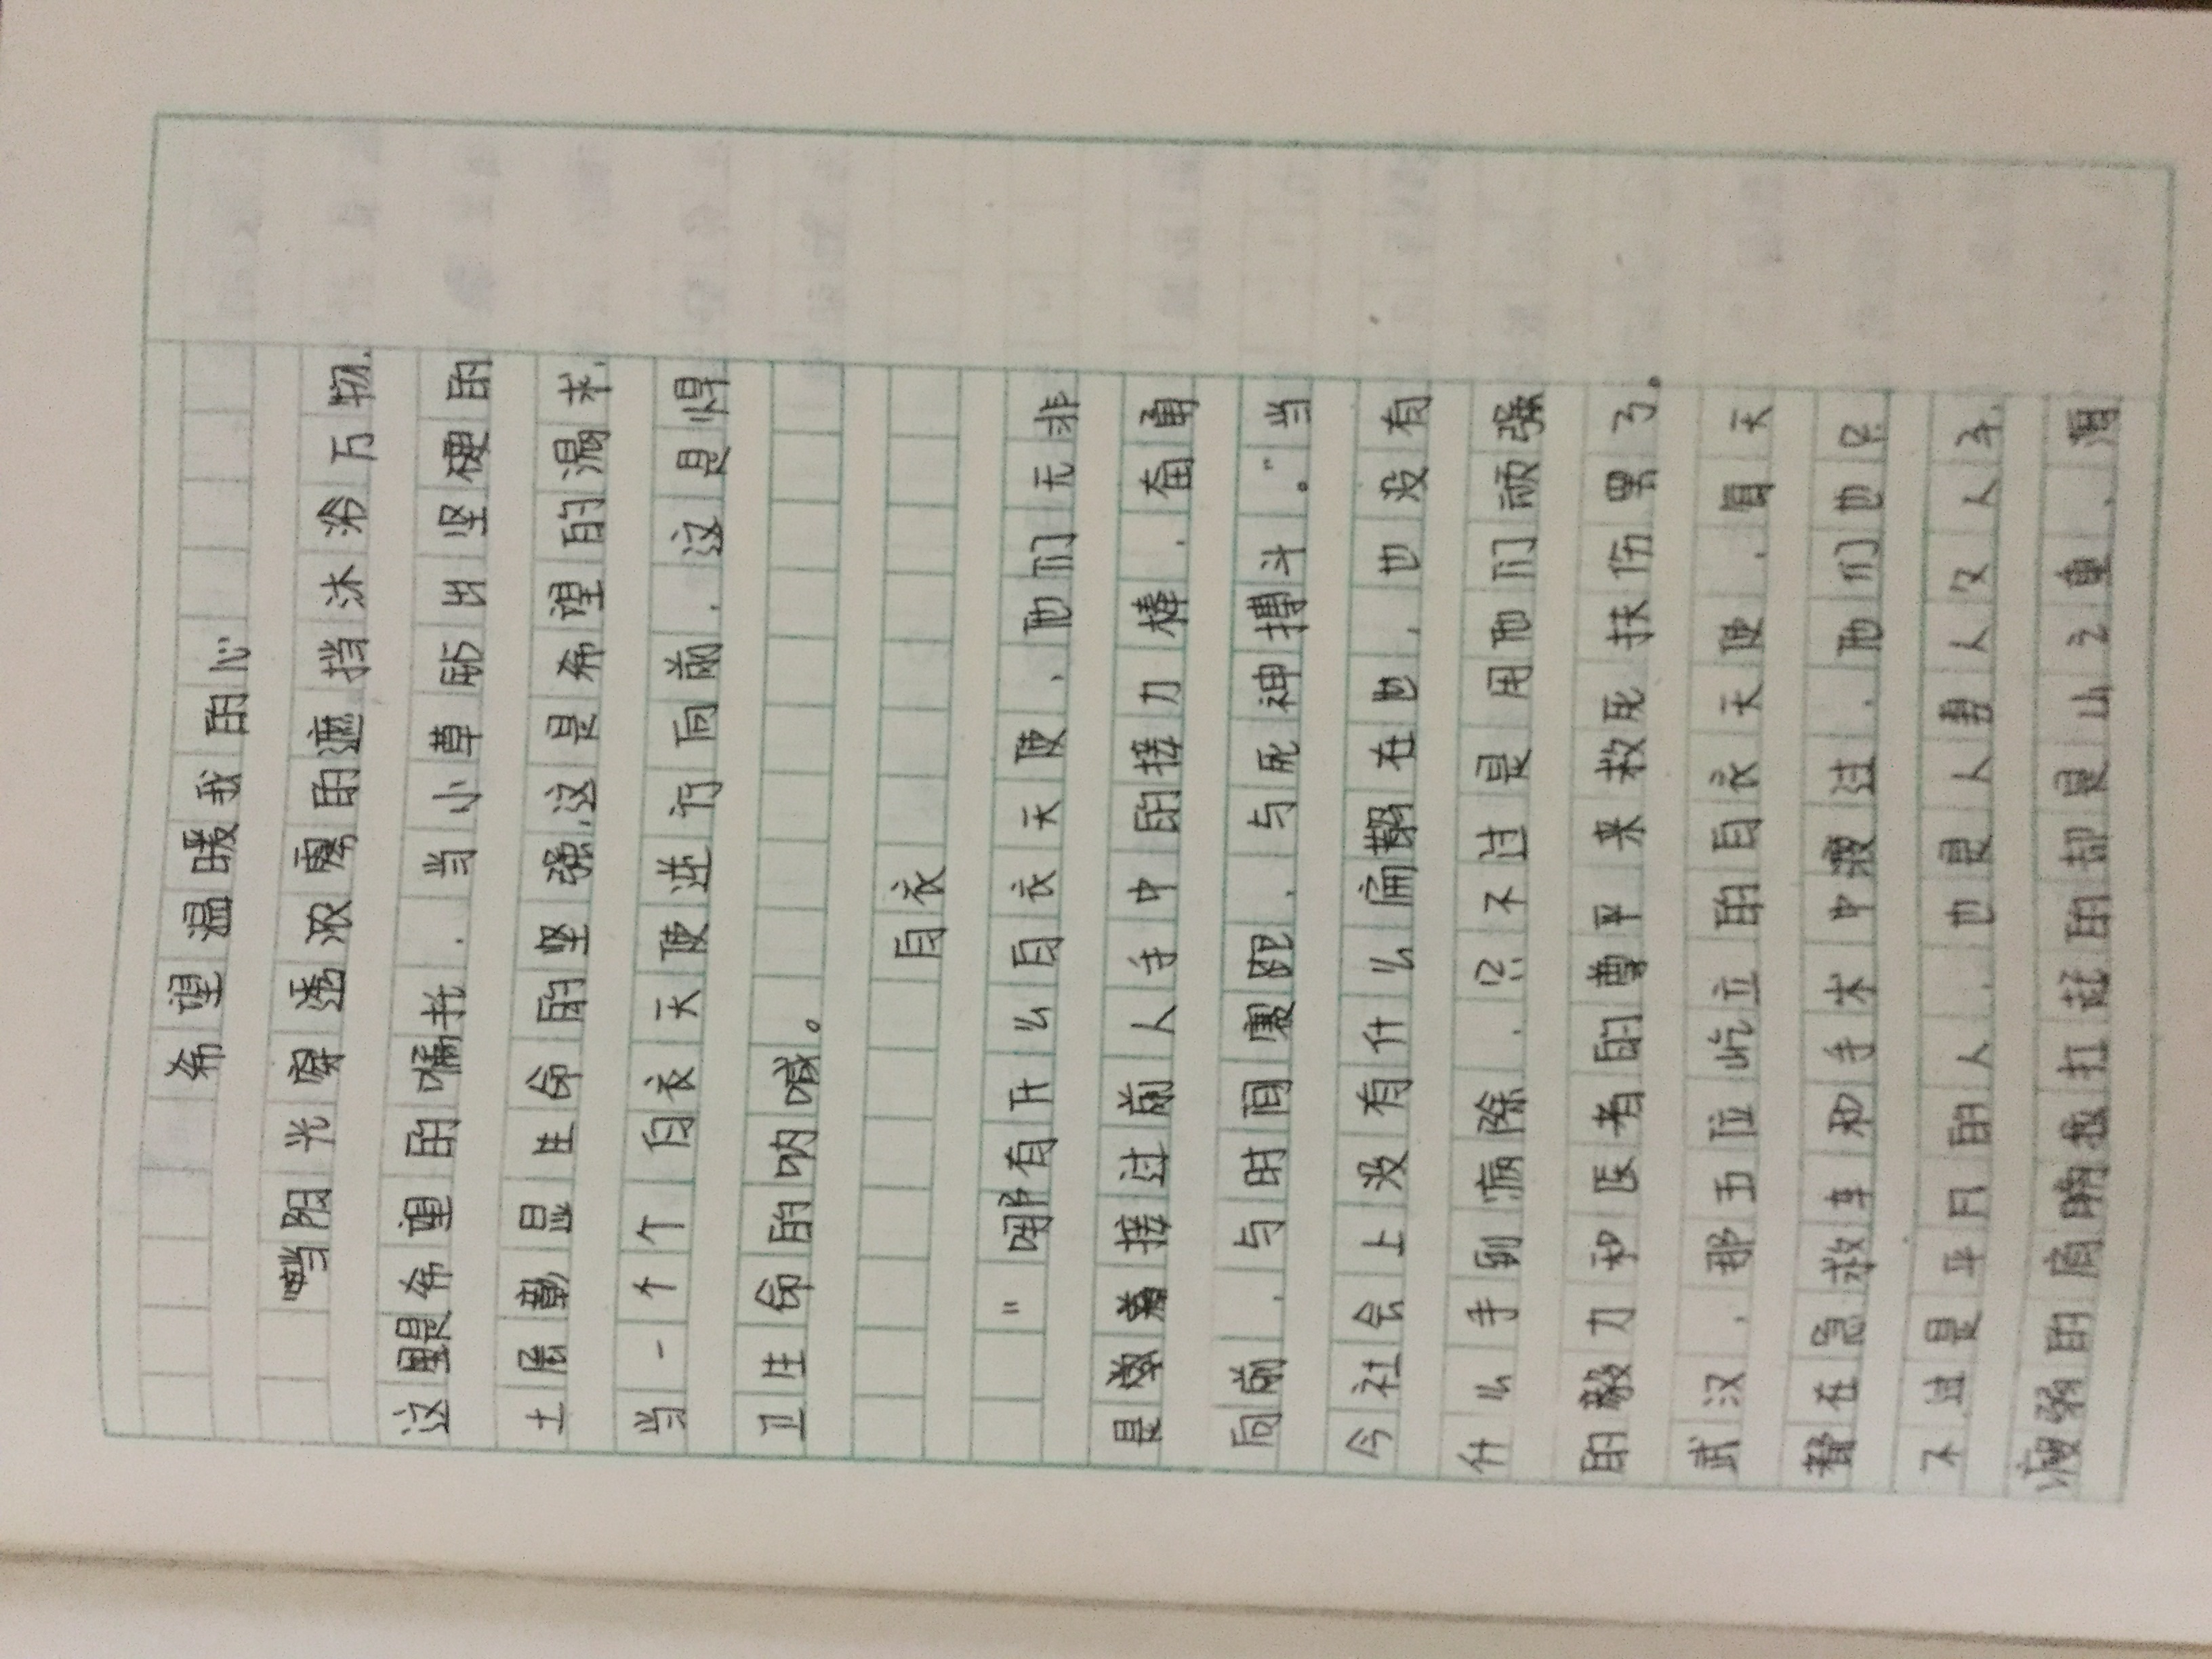 希望温暖我的心
当阳光穿透浓雾的遮挡沐浴万物,
这是希望的嘱托,当小草站出坚硬的
土层彰显生命的坚强,这是希望的渴求,
当一个个白衣天使逆行向前,这是悍
卫生命的呐喊。
白衣
“哪有什么白衣天使,他们无非
是数着接过前人手中的接力棒,奋勇
向前,与时间赛跑,与死神搏斗。”当
今社会上没有什么扁鹊在世,也没有
什么手到病除,只不过是用他们顽强
的毅力和医者的尊平来救死扶伤罢了。
武汉,那五位屹立的白衣天使,夏天
都在急救车和手术中渡过,他们也只
不过是平凡的人,也是人妻人女人子,
瘦弱的肩膀扛起的却是山之重,